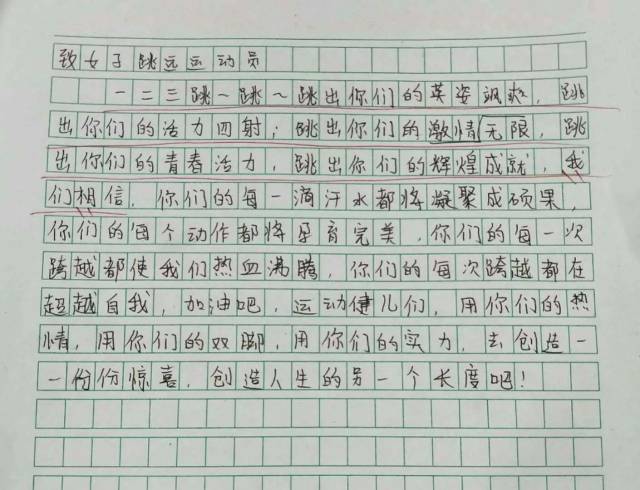 致女子跳远运动员
一二三跳～跳～跳出你们的英姿飒爽，跳
出你们的活力四射；跳出你们的激情无限，跳
出你们的青春活力，跳出你们的辉煌成就，我
们相信，你们的每一滴汗水都将凝聚成硕果，
你们的每个动作都将孕育完美，你们的每一次
跨越都使我们热血沸腾，你们的每次跨越都在
超越自我，加油吧，运动健儿们，用你们的热
情，用你们的双脚，用你们的实力，去创造一
一份份惊喜，创造人生的另一个长度吧！